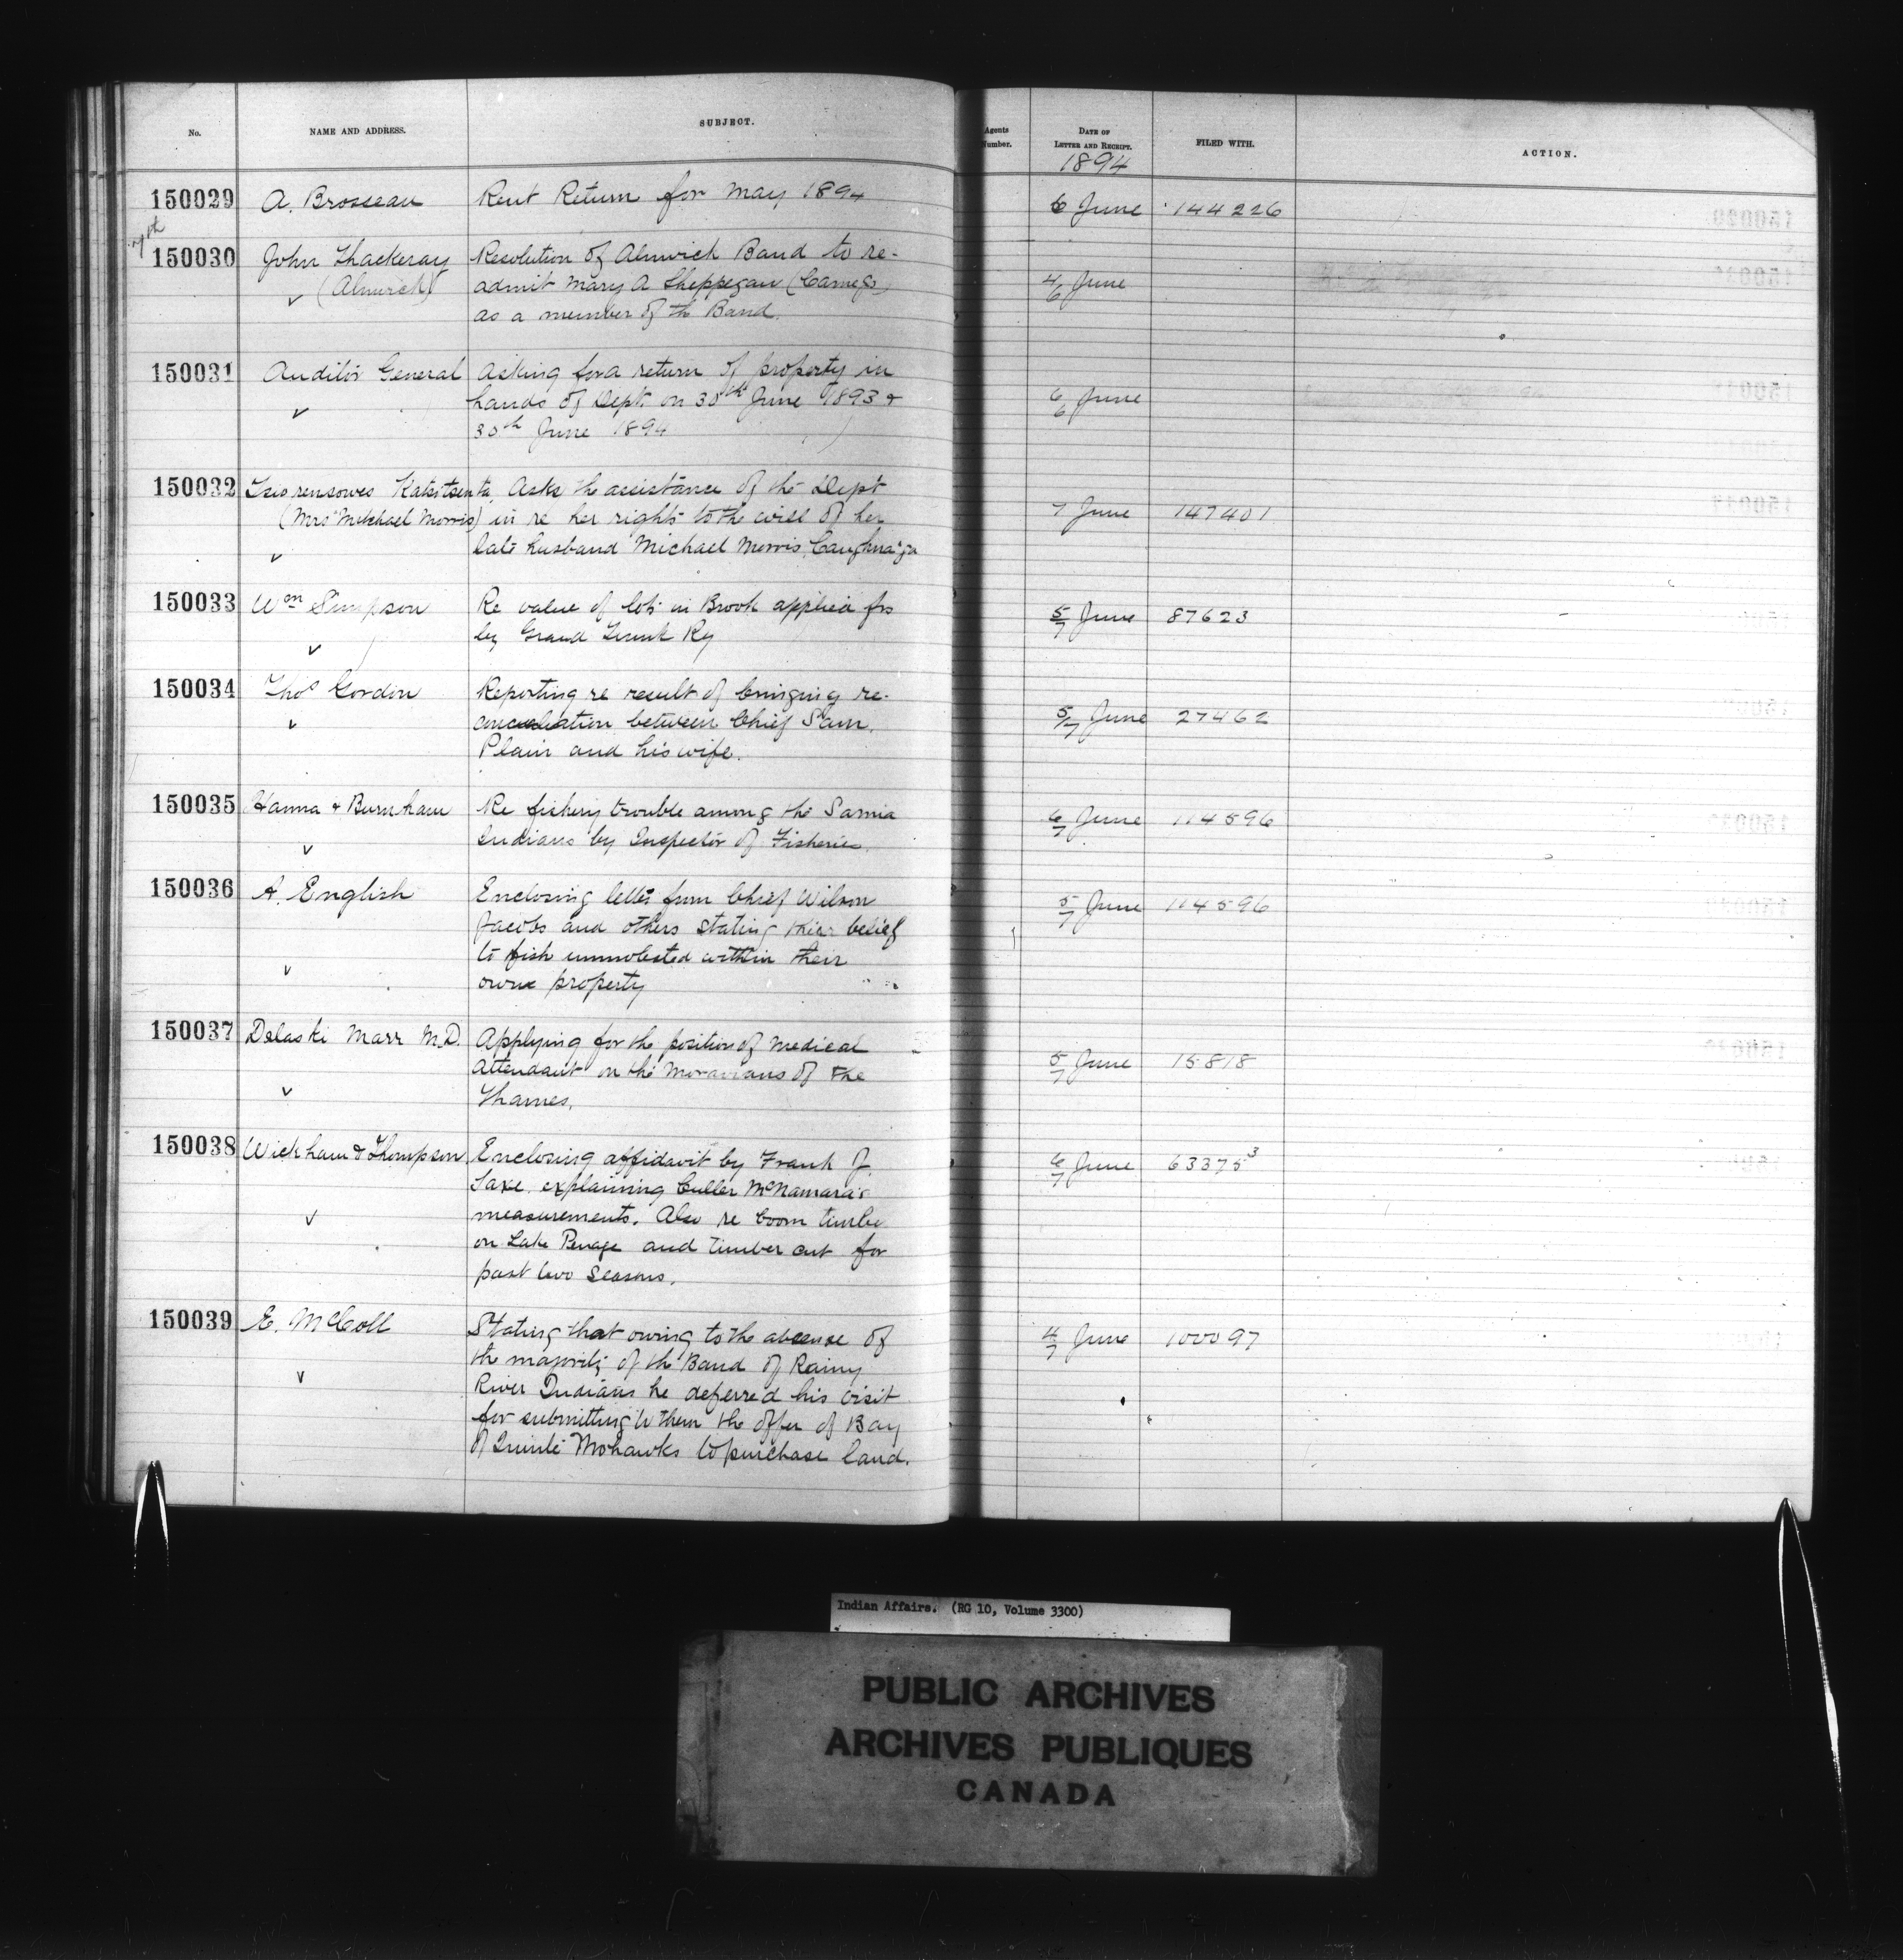 No. NAME AND ADDRESS. SUBJECT. Agents Number. DATE OF LETTER AND RECEIPT. FILED WITH. ACTION.
1894
150029 A. Brosseau Rent Return for May 1894 6 June 144226
7th
150030 John Thackeray Resolution of Alnwick Band to re-
(Alnwick) admit Mary A Sheppegan 4/6 June
as a member of the Band.
150031 Auditor General Asking for a return of property in
hands of Dept on 30th June 1893 & 6/6 June
30th June 1894
150032 Katsitsenta Asks the assistance of the Dept
(Mrs Mitchael Morris) in re her rights to the will of her 7 June 147401
late husband Michael Morris, Caughnaga
150033 Wm Simpson Re value of lots in Brook applied for 5/7 June 87623
by Grand Trunk Ry
150034 Thos Gordon Reporting re result of bringing re-
conciliation between Chief Sam. 5/7 June 27462
Plain and his wife.
150035 Hanna & Burnham Re fishery trouble among the Sarnia 6/7 June 114596
Indians by Inspector of Fisheries.
150036 A. English Enclosing letter from Chief Wilson 5/7 June 114596
Jacobs and others stating thier belief
to fish unmolested within their
own property
150037 Delaski Marr M.D. Applying for the position of medical
attendant on the Moravians of the 5/7 June 15818
Thames.
150038 Wickham & Thompson Enclosing affidavit by Frank J. 6/7 June 63375³
Saxe, explaining Culler McNamara's
measurements. Also re boom timber
on Lake Penage and timber cut for
past two seasons.
150039 E. McColl Stating that owing to the absence of 4/7 June 100097
the majority of the Band of Rainy
River Indians he deferred his visit
for submitting to them the offer of Bay
of Quinté Mohawks to purchase land.
Indian Affairs. (RG 10, Volume 3300)
PUBLIC ARCHIVES
ARCHIVES PUBLIQUES
CANADA